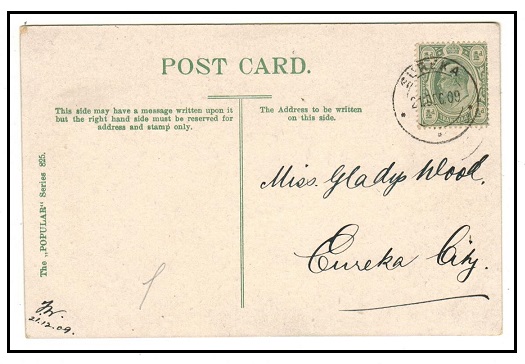 POST CARD.
EUREKA
DEC 09
This side may have a message written upon it
but the right hand side must be reserved for
address and stamp only.
The Address to be written
on this side.
The „POPULAR" Series 825.
Miss. Gladys Wood.
Eureka City.
21.12.09.